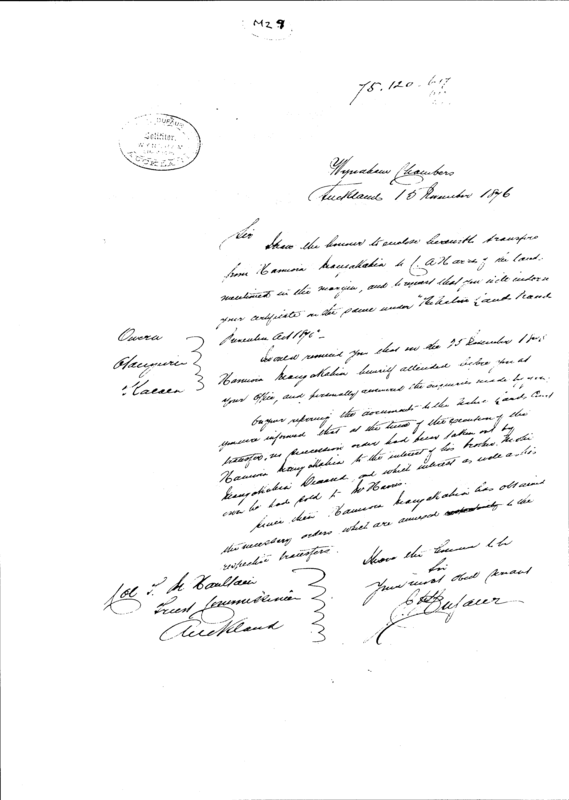 MZ 9
75.120
Solicitor,
AUCKLAND
Wyndham Chambers
Auckland 15 November 1876
Sir
I have the honour to enclose herewith transfers
from Hamiora Mangakahia to C. A. Harris of the land
mentioned in the margin, and to request that you will indorse
your certificate on the same under "The Native Lands Frauds
Prevention Act 1870"
Owera
Otanguru
I would remind you that on the 25 November 1875
Hamiora Mangakahia himself attended before you at
your office, and personally answered the enquiries made by you
On your referring the documents to the Native Lands Court
you were informed that at the time of the execution of the
transfers, no succession order had been taken out by
Hamiora Mangakahia to the interest of his brother
Mangakahia deceased and which interest as well as his
own he had sold to Mr Harris.
Since then Hamiora Mangakahia has obtained
the necessary orders which are annexed to the
respective transfers.
I have the honour to be
Sir
Your most obed servant
Col T. M Haultain
Trust Commissioner
Auckland